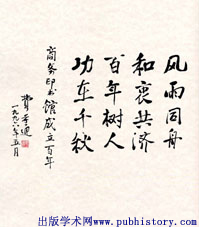 风雨同舟
和衷共济
百年树人
功在千秋
商务印书馆成立百年
费孝通
一九九六年五月
出版学术网 www.pubhistory.com